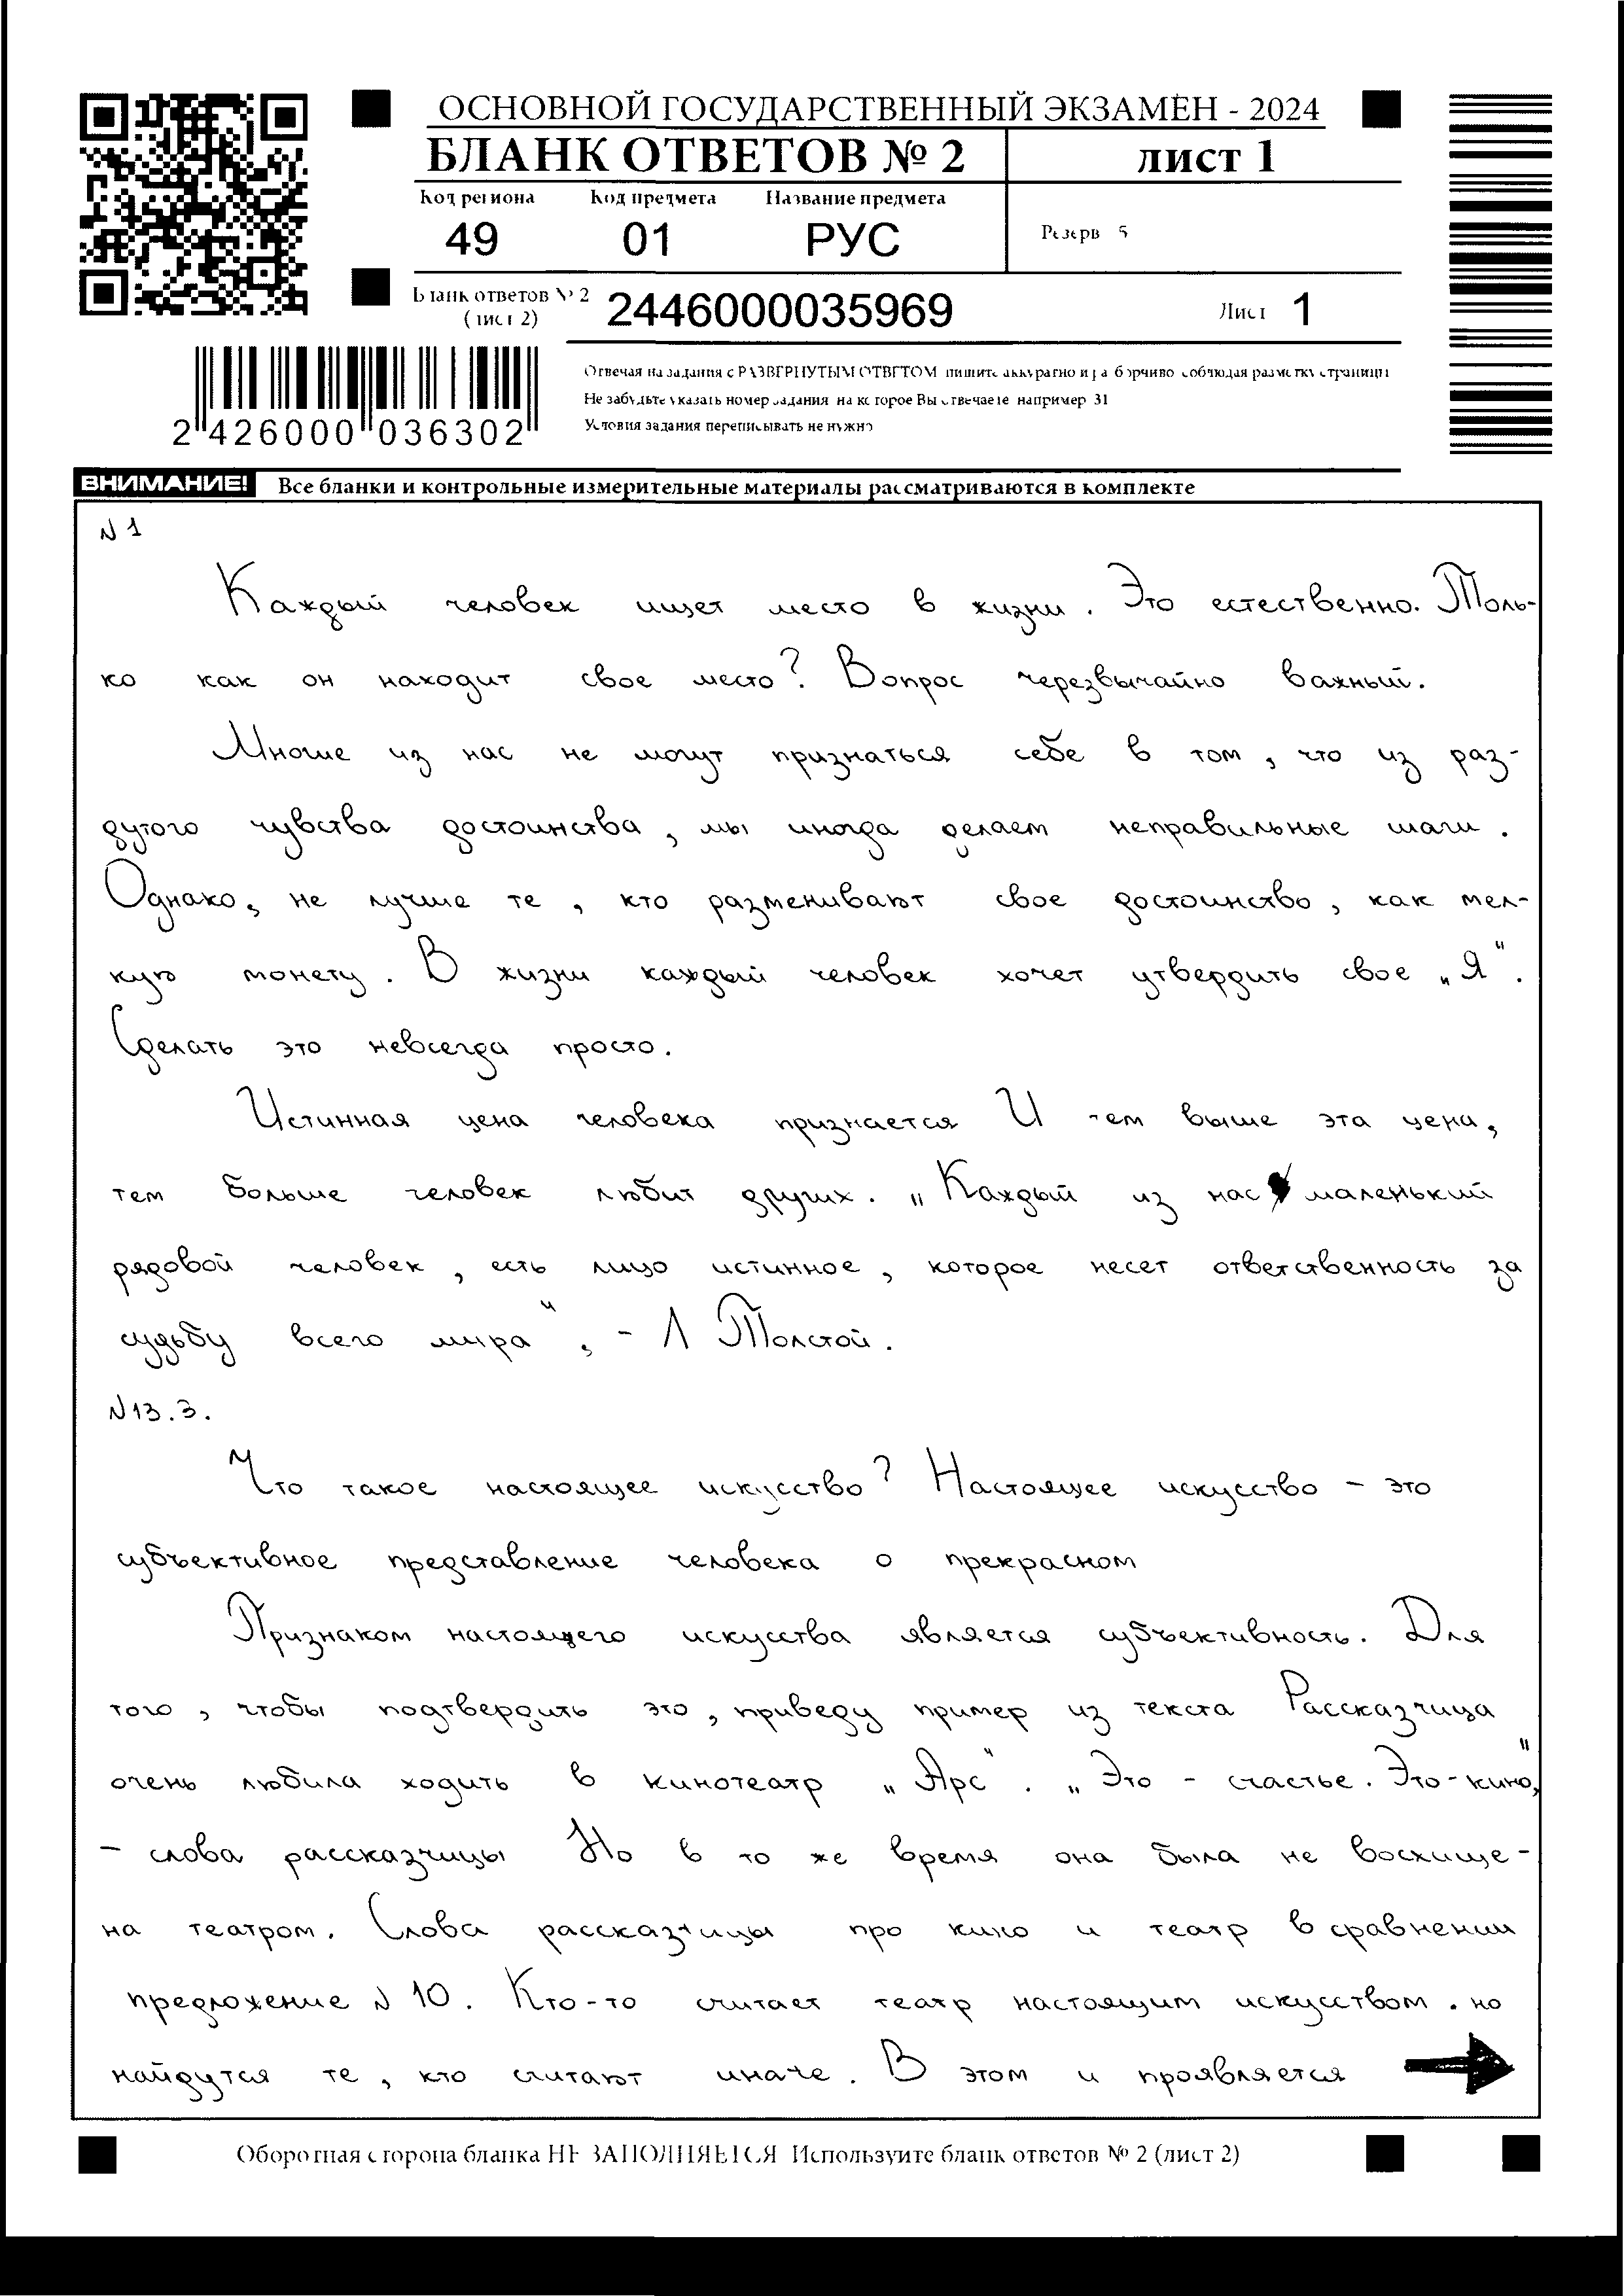 ОСНОВНОЙ ГОСУДАРСТВЕННЫЙ ЭКЗАМЕН - 2024
БЛАНК ОТВЕТОВ № 2 лист 1
Код региона Код предмета Название предмета
49 01 РУС Резерв 5
Бланк ответов № 2
(лист 2) 2446000035969 Лист 1
Отвечая на задания с РАЗВЕРНУТЫМ ОТВЕТОМ пишите аккуратно и разборчиво соблюдая разметку страницы
Не забудьте указать номер задания на которое Вы отвечаете например 31
Условия задания переписывать не нужно
2 426000 036302
ВНИМАНИЕ! Все бланки и контрольные измерительные материалы рассматриваются в комплекте
N 1
Каждый человек ищет место в жизни. Это естественно. Толь-
ко как он находит свое место? Вопрос черезвычайно важный.
Многие из нас не могут признаться себе в том, что из раз-
дутого чувства достоинства, мы иногда делаем неправильные шаги.
Однако, не лучше те, кто разменивают свое достоинство, как мел-
кую монету. В жизни каждый человек хочет утвердить свое „Я".
Сделать это невсегда просто.
Истинная цена человека признается И чем выше эта цена,
тем больше человек любит других. „Каждый из нас маленький
рядовой человек, есть лицо истинное, которое несет ответственность за
судьбу всего мира", - Л Толстой.
N13.3.
Что такое настоящее искусство? Настоящее искусство - это
субъективное представление человека о прекрасном
Признаком настоящего искусства является субъективность. Для
того, чтобы подтвердить это, приведу пример из текста Рассказчица
очень любила ходить в кинотеатр „Арс". „Это - счастье. Это-кино",
- слова рассказчицы Но в то же время она была не восхище-
на театром. Слова рассказчицы про кино и театр в сравнении
предложение N 10. Кто-то считает театр настоящим искусством. но
найдутся те, кто считают иначе. В этом и проявляется
Оборотная сторона бланка НЕ ЗАПОЛНЯЕТСЯ Используйте бланк ответов № 2 (лист 2)